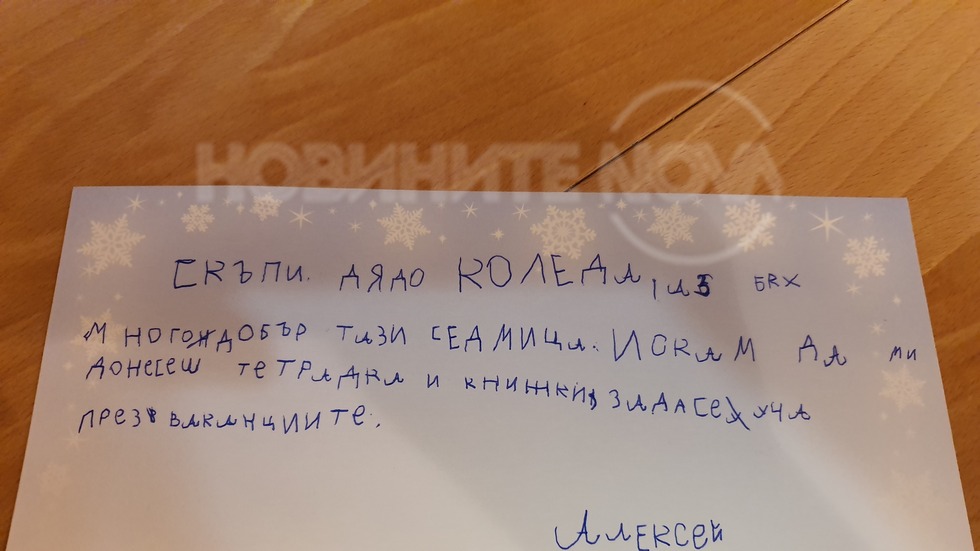 СКЪПИ ДЯДО КОЛЕДА, АЗ БЯХ
МНОГО ДОБЪР ТАЗИ СЕДМИЦА. ИСКАМ ДА МИ
ДОНЕСЕШ ТЕТРАДКА И КНИЖКИ, ЗА ДА СЕ УЧА
ПРЕЗ ВАКАНЦИИТЕ.
АЛЕКСЕЙ
НОВИНИТЕ NOVA